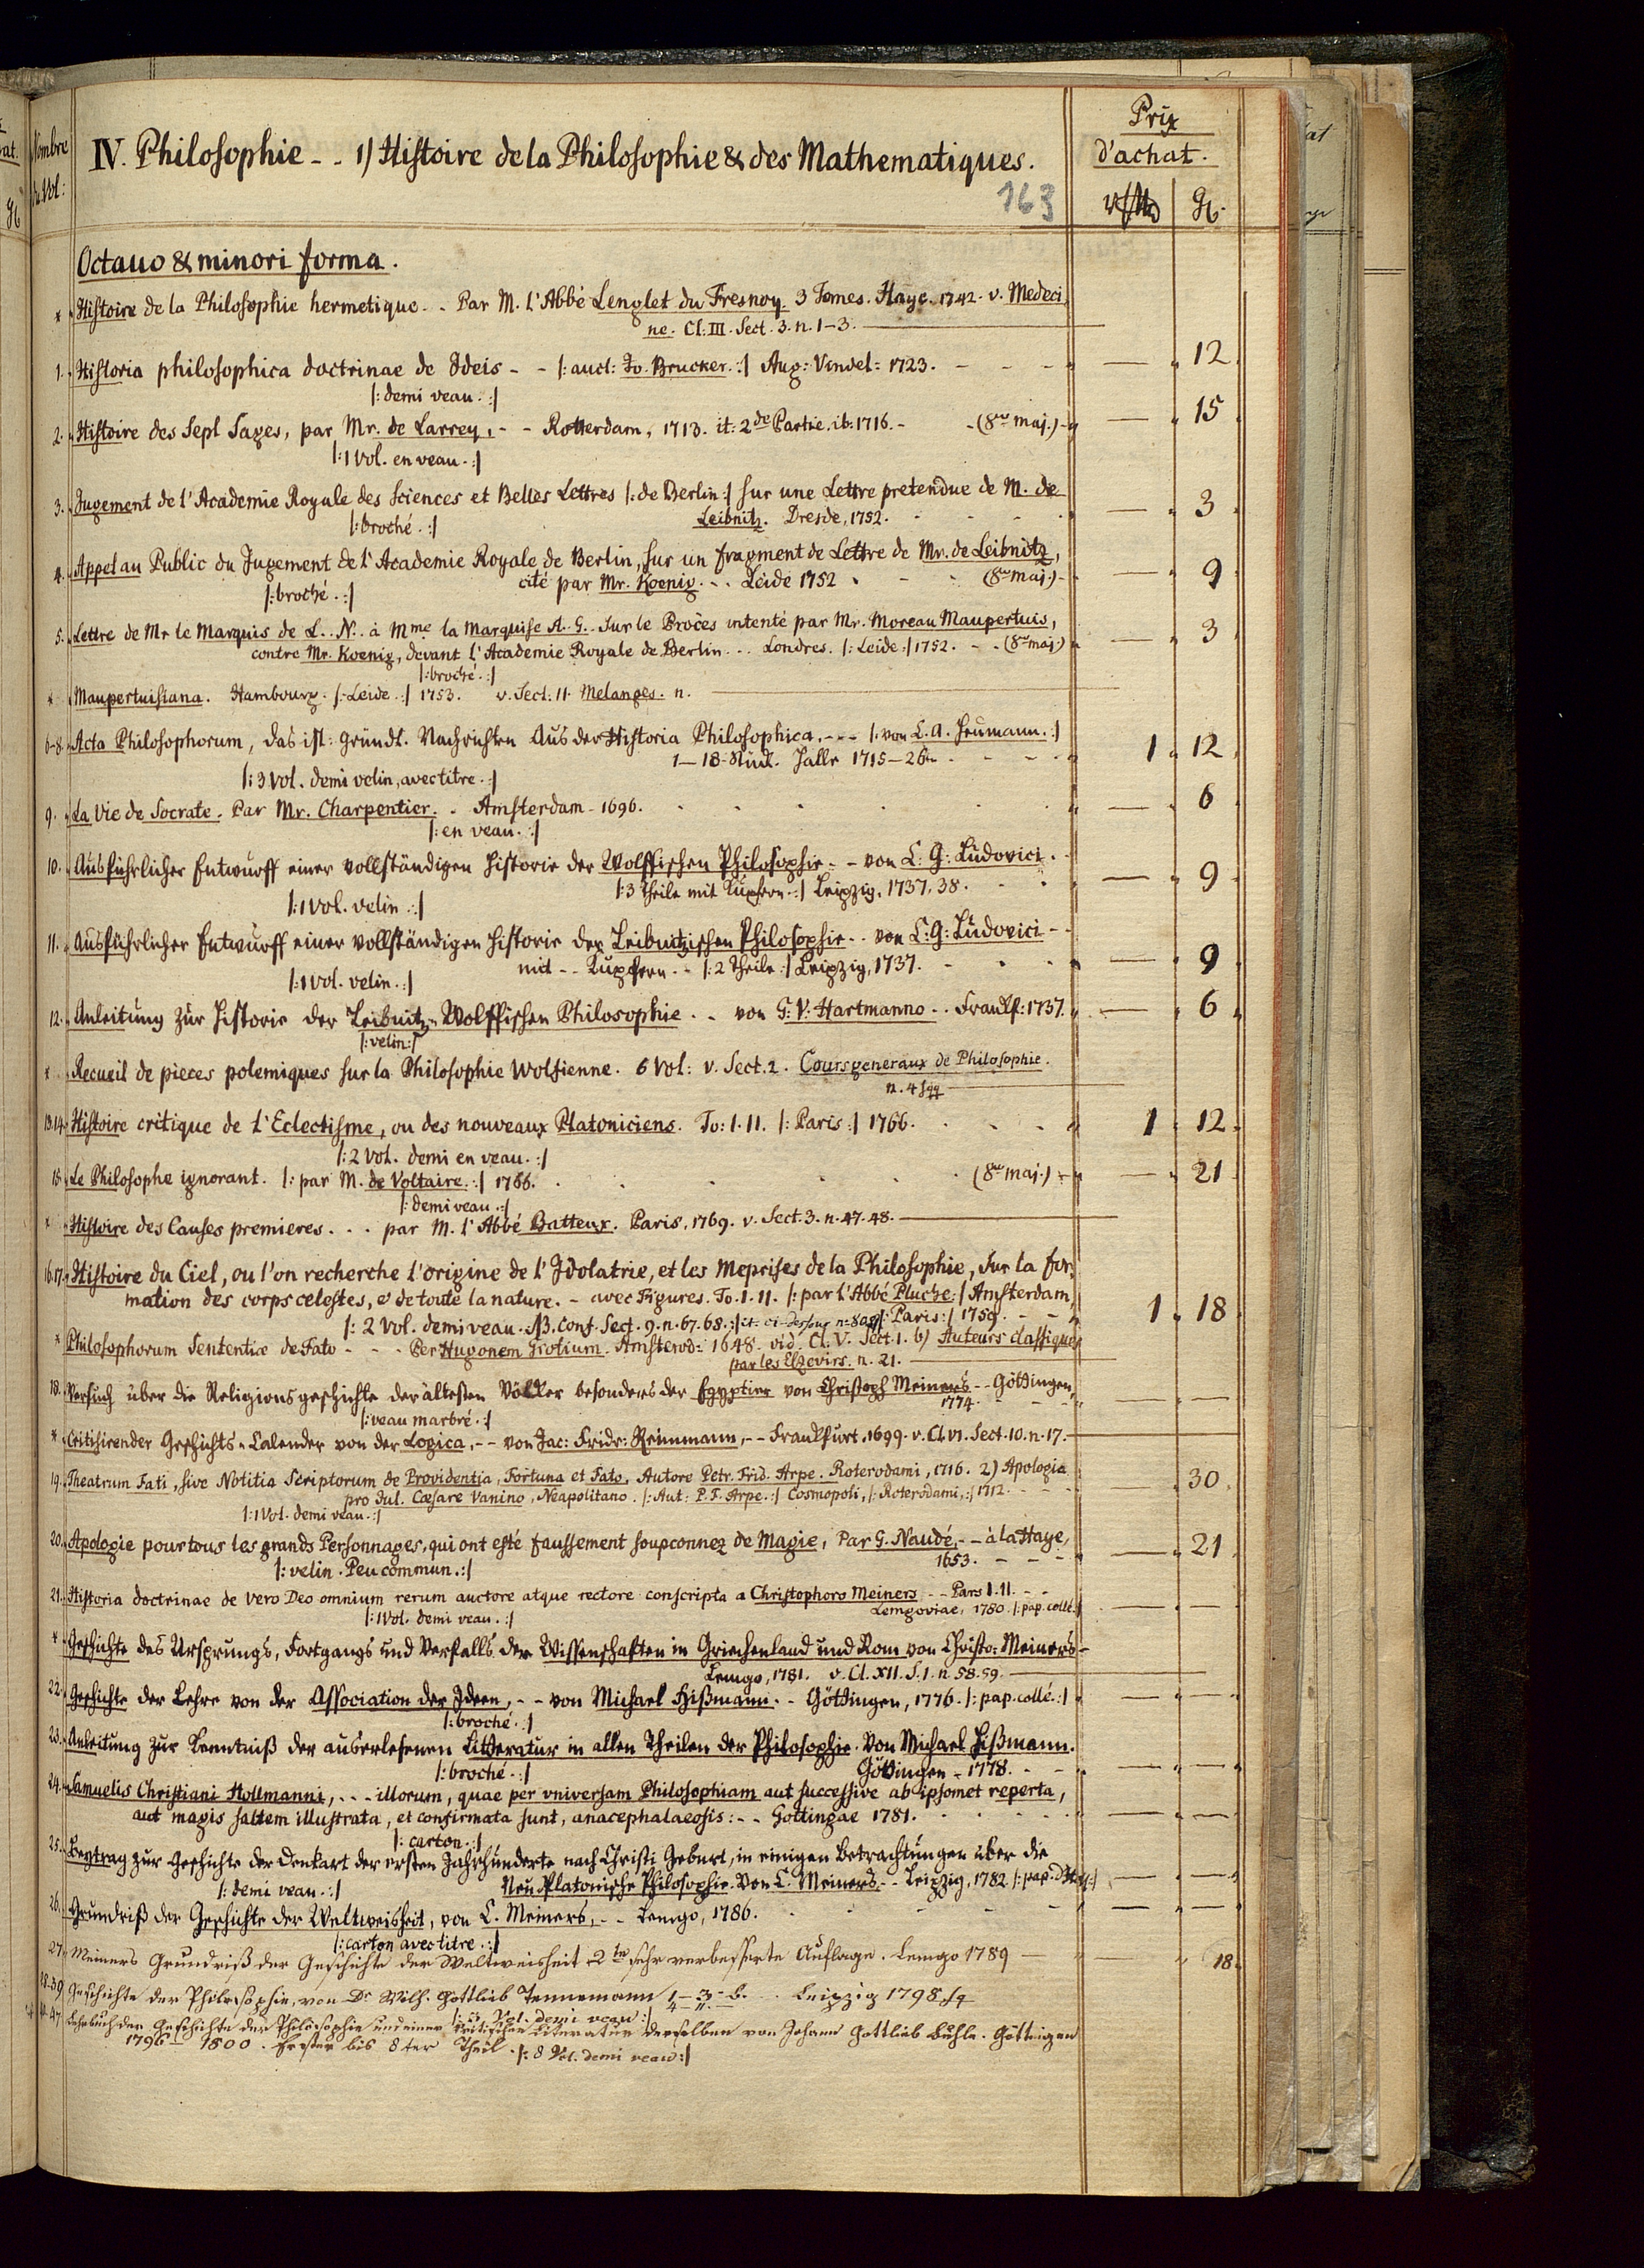 Nombre
du Vol:
IV. Philosophie - - 1) Histoire de la Philosophie & des Mathematiques.
163
Prix
d'achat.
Octavo & minori forma.
* Histoire de la Philosophie hermetique. . Par M. l'Abbé Lenglet du Fresnoy. 3 Tomes. Haye. 1742. v. Medeci
ne. Cl: III. Sect. 3. n. 1-3.
1. Historia philosophica doctrinae de Ideis - - |: auct: Jo. Brucker. :| Aug: Vindel: 1723. - - - — 12
|: demi veau. :|
2. Histoire des Sept Sages, par Mr. de Larrey, - - Rotterdam, 1713. it: 2de Partie. ib. 1716. - - (8vo maj.) — 15
|: 1 Vol. en veau. :|
3. Jugement de l'Academie Royale des Sciences et Belles Lettres |: de Berlin :| sur une Lettre pretendue de M. de
|: broché. :| Leibnitz. Dresde, 1752. — 3
4. Appel au Public du Jugement de l'Academie Royale de Berlin, sur un fragment de Lettre de Mr. de Leibnitz,
|: broché. :| cité par Mr. Koenig. - . Leide 1752 . - . (8vo maj.) - — 9
5. Lettre de Mr le Marquis de L. . N. . à Mme la Marquise A. G. . Sur le Procès intenté par Mr. Moreau Maupertuis,
contre Mr. Koenig, devant l'Academie Royale de Berlin. . . Londres. |: Leide :| 1752. - . (8vo maj.) — 3
|: broché. :|
* Maupertuisiana. Hambourg. |: Leide. :| 1753. v. Sect: 11. Melanges. n.
6-8. Acta Philosophorum, das ist: gründl. Nachrichten Aus der Historia Philosophica. - - - |: von C. A. Heumann. :|
1-18. Stück. Halle 1715-26. 1 12
|: 3 Vol. demi velin, avec titre. :|
9. La Vie de Socrate. Par Mr. Charpentier. . Amsterdam - 1696. — 6
|: en veau. :|
10. Ausführlicher Entwurff einer vollständigen Historie der Wolffischen Philosophie - - von C: G: Ludovici.
|: 3 Theile mit Kupfern. :| Leipzig, 1737. 38. — 9
|: 1 Vol. velin. :|
11. Ausführlicher Entwurff einer vollständigen Historie der Leibnitzischen Philosophie. . von C: G: Ludovici -
mit - - Kupfern. - |: 2 Theile :| Leipzig, 1737. — 9
|: 1 Vol. velin. :|
12. Anleitung zür Historie der Leibnitz-Wolffischen Philosophie. . von G. V. Hartmanno. . Frankf: 1737. — 6
|: velin :|
* Recueil de pieces polemiques sur la Philosophie Wolfienne. 6 Vol: v. Sect. 2. Cours generaux de Philosophie.
n. 4 sqq
13.14. Histoire critique de l'Eclectisme, ou des nouveaux Platoniciens. To: 1. 11. |: Paris :| 1766. 1 12
|: 2 Vol. demi en veau. :|
15. Le Philosophe ignorant. |: par M. de Voltaire. :| 1766. (8vo maj.) - — 21
|: demi veau. :|
* Histoire des Causes premieres. . . par M. l'Abbé Batteux. Paris, 1769. v. Sect. 3. n. 47. 48.
16.17. Histoire du Ciel, ou l'on recherche l'origine de l'Idolatrie, et les Meprises de la Philosophie, sur la for
mation des corps celestes, & de toute la nature. - avec Figures. To. 1. 11. |: par l'Abbé Pluche :| Amsterdam,
|: 2 Vol. demi veau. NB. Conf. Sect. 9. n. 67. 68. :| |: Paris :| 1759. 1 18
* Philosophorum Sententiæ de Fato - - - Per Hugonem Grotium. Amsterod: 1648. vid. Cl. V. Sect. 1. b) Auteurs classiques
par les Elzevirs. n. 21.
18. Versuch über die Religionsgeschichte der ältesten Völker besonders der Egyptier von Christoph Meiners - - Göttingen,
1774. — —
|: veau marbré. :|
* Critisirender Geschichts-Calender von der Logica, - - von Jac: Fridr: Reimmann, - - Frankfurt. 1699. v. Cl. VI. Sect. 10. n. 17.
19. Theatrum Fati, sive Notitia Scriptorum de Providentia, Fortuna et Fato, Autore Petr. Frid. Arpe. Roterodami, 1716. 2) Apologia
pro Jul. Cæsare Vanino, Neapolitano. |: Aut: P. F. Arpe. :| Cosmopoli, |: Roterodami, :| 1712. — 30
|: 1 Vol. demi veau. :|
20. Apologie pour tous les grands Personnages, qui ont esté faussement soupconnez de Magie, Par G. Naudé, - - à la Haye,
1653. - - - — 21
|: velin. Peu commun. :|
21. Historia doctrinae de vero Deo omnium rerum auctore atque rectore conscripta a Christophoro Meiners - - Pars 1. 11. - -
Lemgoviae, 1780. |: pap. collé. :| — —
|: 1 Vol. demi veau. :|
* Geschichte des Ursprungs, Fortgangs und Verfalls der Wissenschaften in Griechenland und Rom von Christo: Meiners -
Lemgo, 1781. v. Cl. XII. S. 1. n. 58. 59.
22. Geschichte der Lehre von der Association der Ideen, - - von Michael Hißmann. - Göttingen, 1776. |: pap. collé. :| — —
|: broché. :|
23. Anleitung zur Kenntniß der auserlesenen Litteratur in allen Theilen der Philosophie. Von Michael Hißmann.
|: broché. :| Göttingen - 1778. — —
24. Samuelis Christiani Hollmanni, - - - illorum, quae per vniversam Philosophiam aut successive ab ipsomet reperta,
aut magis saltem illustrata, et confirmata sunt, anacephalaeosis: - - Gottingae 1781. — —
|: carton. :|
25. Beytrag zur Geschichte der Denkart der ersten Jahrhunderte nach Christi Geburt, in einigen Betrachtungen über die
|: demi veau. :| Neu Platonische Philosophie. Von C. Meiners - - Leipzig, 1782. — —
26. Grundriß der Geschichte der Weltweisheit, von C. Meiners, - - Lemgo, 1786. — —
|: carton avec titre. :|
27. Meiners Grundriß der Geschichte der Weltweisheit 2te sehr verbesserte Auflage. Lemgo 1789 — 18.
Geschichte der Philosophie, von Dr Wilh. Gottlieb Tennemann Leipzig 1798. sq
Vol. demi veau :|
Lehrbuch der Geschichte der Philosophie und einer kritischen Literatur derselben von Johann Gottlieb Buhle. Göttingen
1796-1800. Erster bis 8ter Theil. |: 8 Vol. demi veau :|